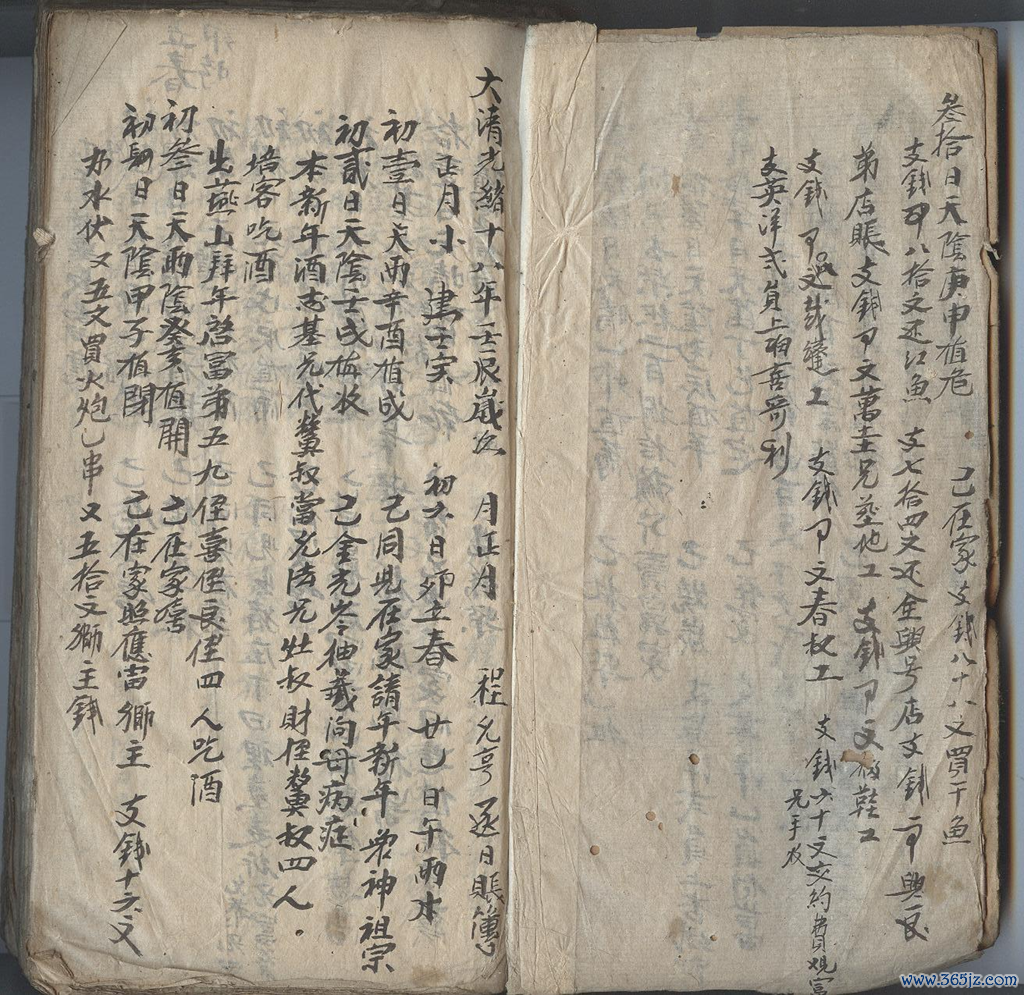 叁拾日天陰庚申值危 己在家支錢八十八文買干魚
支錢 八拾文还江魚 支七拾四文还全興号店支錢 興良
弟店賬支錢 文萬圭兄 他工 支錢 文 鞋工
支錢 工 支錢 文春叔工 支錢六十文交約費观富
兄手收
支英洋弍員上 喜哥利
大清光緒十八年壬辰歲次 月正月 程允亨逐日賬簿
正月小 建壬寅 初六日 卯立春 廿乙日午雨水
初壹日天雨辛酉值成 己同兄在家請年新年 神祖宗
初貳日天陰壬戌值收 己金光 抽籤问母病症
本新年酒志基兄代 叔當允法兄灶叔財侄 叔四人
培客吃酒
出燕山拜年啓富弟五九侄喜侄良侄四人吃酒
初叁日天雨陰癸亥值開 己在家
初肆日天陰甲子值閉 己在家照應當鄉主 支錢十六文
办水伏又五文買火炮乙串又五拾文鄉主錢
www.365jz.com